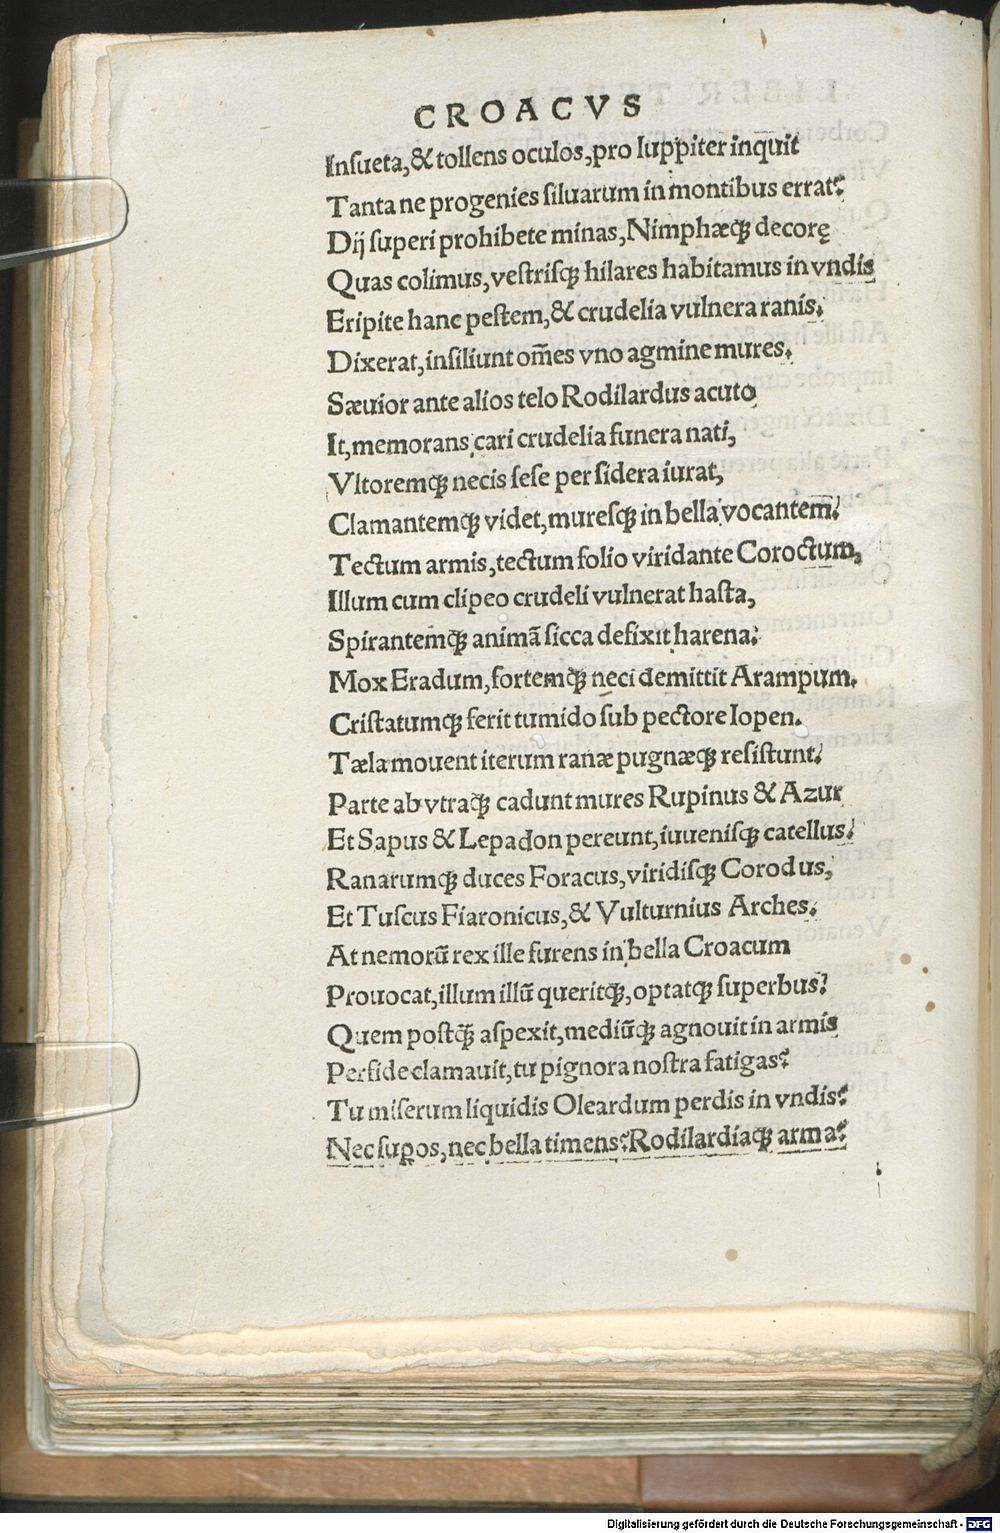 CROACVS
Insueta,& tollens oculos,pro Iuppiter inquit
Tanta ne progenies siluarum in montibus errat?
Dij superi prohibete minas,Nimphæq; decorę
Quas colimus,vestrisq; hilares habitamus in vndis
Eripite hanc pestem,& crudelia vulnera ranis.
Dixerat,insiliunt om̃es vno agmine mures.
Sæuior ante alios telo Rodilardus acuto
It,memorans cari crudelia funera nati,
Vltoremq; necis sese per sidera iurat,
Clamantemq; videt,muresq; in bella vocantem!
Tectum armis,tectum folio viridante Coroctum,
Illum cum clipeo crudeli vulnerat hasta,
Spirantemq; animã sicca defixit harena:
Mox Eradum,fortemq; neci demittit Arampum.
Cristatumq; ferit tumido sub pectore Iopen.
Tæla mouent iterum ranæ pugnæq; resistunt!
Parte ab vtraq; cadunt mures Rupinus & Azur
Et Sapus & Lepadon pereunt,iuuenisq; catellus!
Ranarumq; duces Foracus,viridisq; Corodus,
Et Tuscus Fiaronicus,& Vulturnius Arches.
At nemorũ rex ille furens in bella Croacum
Prouocat,illum illũ queritq;,optatq; superbus!
Quem postq̃ aspexit,mediũq; agnouit in armis
Perfide clamauit,tu pignora nostra fatigas?
Tu miserum liquidis Oleardum perdis in vndis?
Nec supos,nec bella timens?Rodilardiaq; arma?
Digitalisierung gefördert durch die Deutsche Forschungsgemeinschaft - DFG